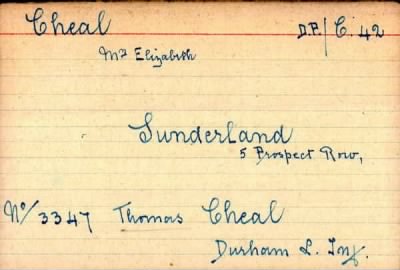 Cheal D.P./C. 42
Mrs Elizabeth
Sunderland
5 Prospect Row,
No/3347 Thomas Cheal
Durham L. Inf.